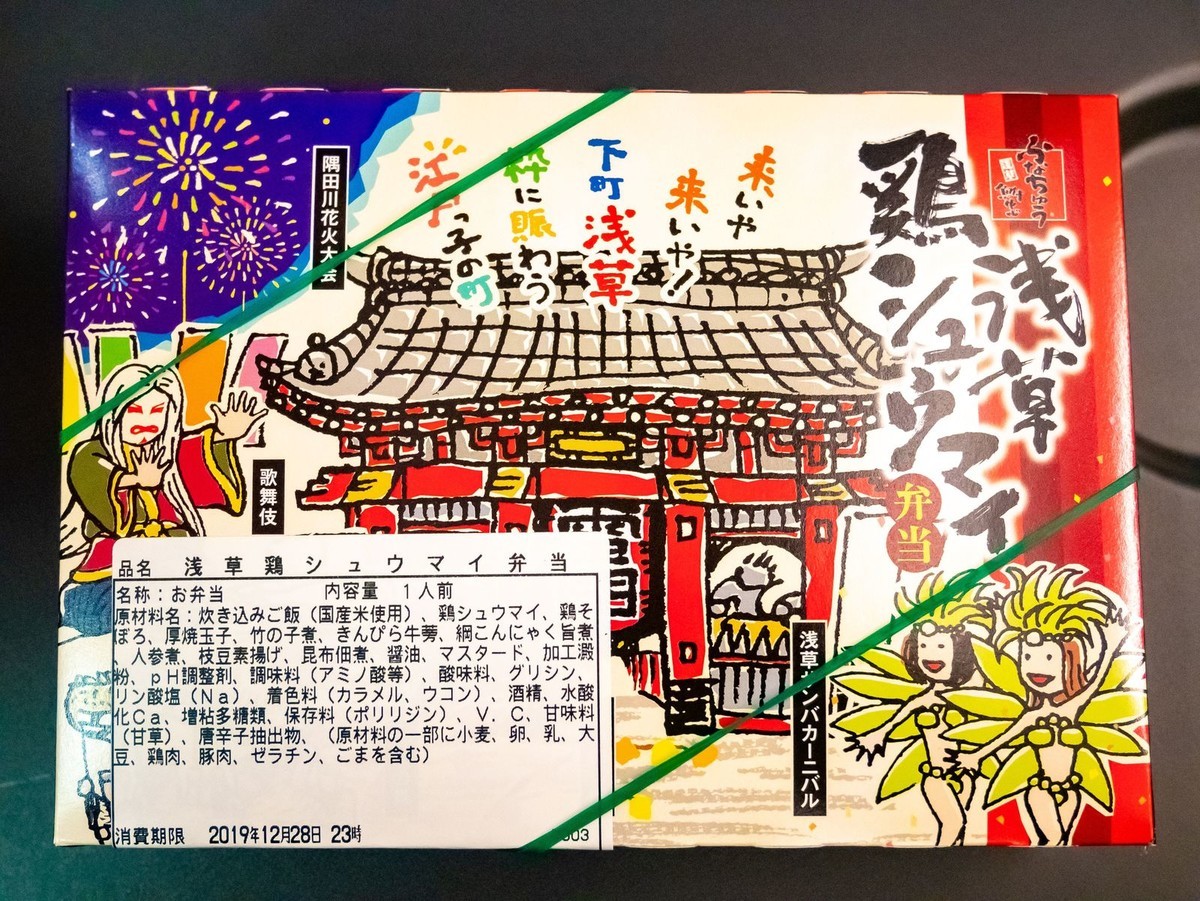 ふなちゅう
浅草
鶏シュウマイ
弁当
来いや
来いや!
下町浅草
粋に賑わう
江戸っ子の町
隅田川花火大会
歌舞伎
浅草サンバカーニバル
品名 浅草鶏シュウマイ弁当
名称:お弁当 内容量 1人前
原材料名:炊き込みご飯(国産米使用)、鶏シュウマイ、鶏そ
ぼろ、厚焼玉子、竹の子煮、きんぴら牛蒡、網こんにゃく旨煮
、人参煮、枝豆素揚げ、昆布佃煮、醤油、マスタード、加工澱
粉、pH調整剤、調味料(アミノ酸等)、酸味料、グリシン、
リン酸塩(Na)、着色料(カラメル、ウコン)、酒精、水酸
化Ca、増粘多糖類、保存料(ポリリジン)、V.C、甘味料
(甘草)、唐辛子抽出物、(原材料の一部に小麦、卵、乳、大
豆、鶏肉、豚肉、ゼラチン、ごまを含む)
消費期限 2019年12月28日 23時